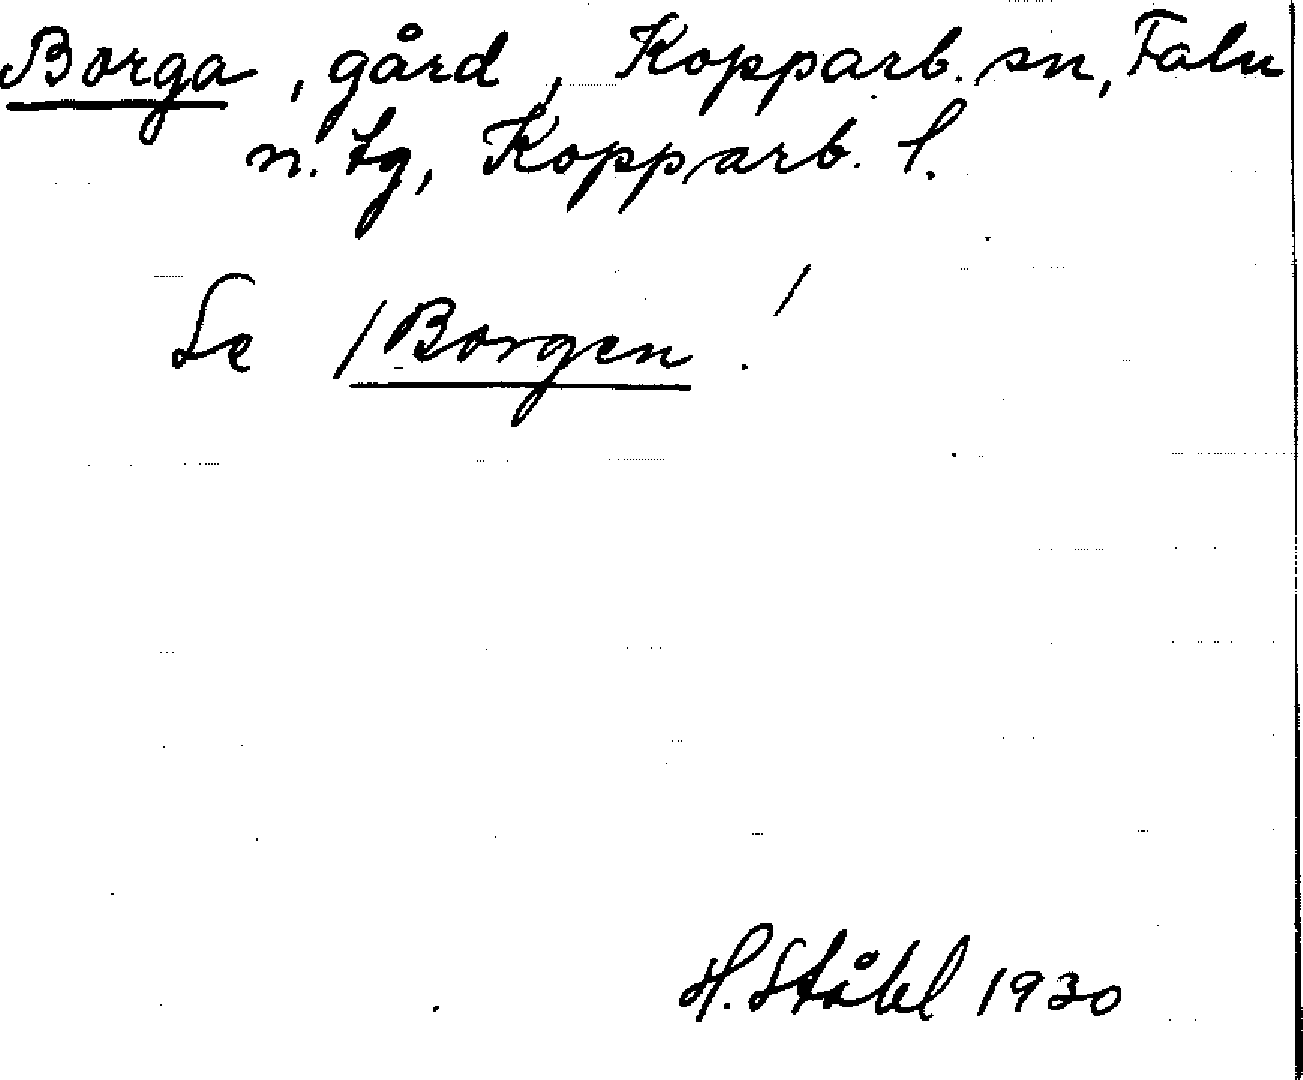 Borga, gård, Kopparb. sn, Falu
n. tg, Kopparb. l.
Se /Borgen./
H. Ståhl 1930